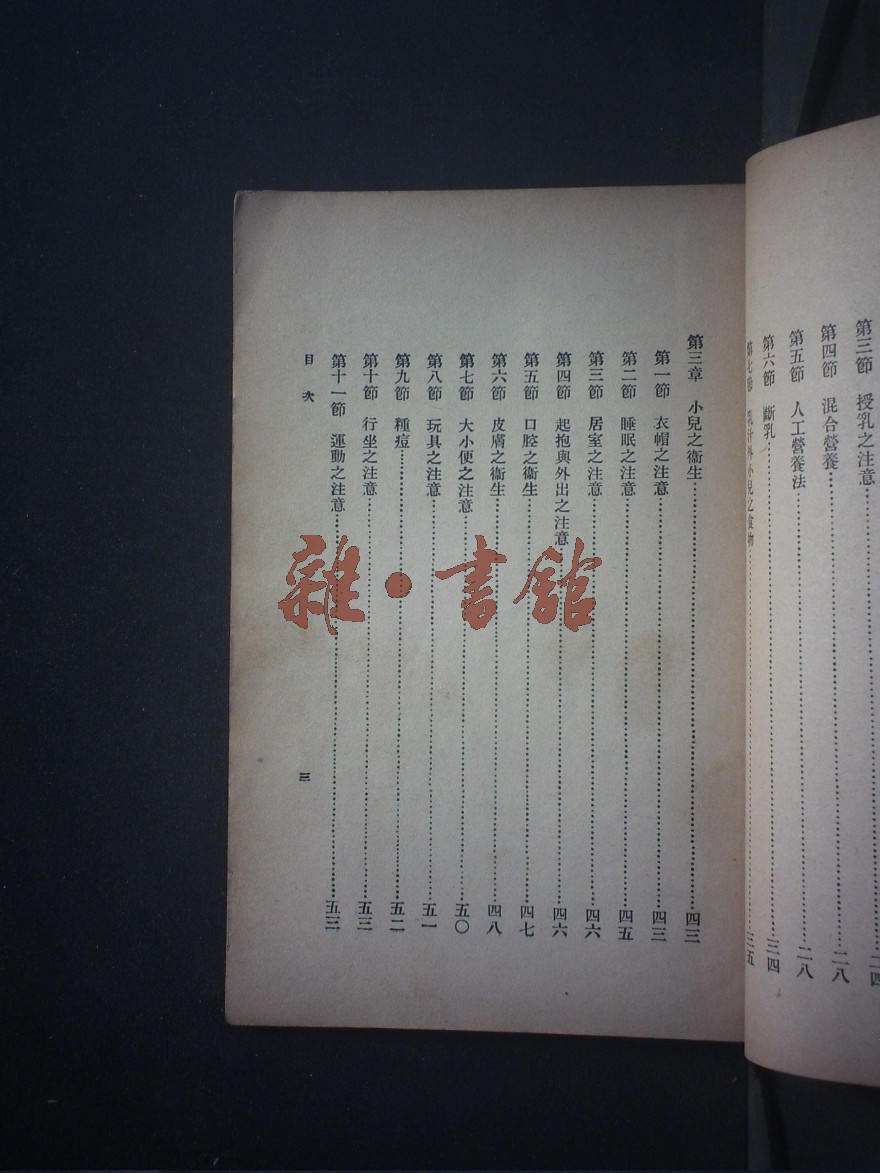 第三節 授乳之注意……二四
第四節 混合營養……二八
第五節 人工營養法……二八
第六節 斷乳……三四
第七節 乳汁外小兒之食物……三五
第三章 小兒之衞生……四三
第一節 衣帽之注意……四三
第二節 睡眠之注意……四五
第三節 居室之注意……四六
第四節 起抱與外出之注意……四六
第五節 口腔之衞生……四七
第六節 皮膚之衞生……四八
第七節 大小便之注意……五〇
第八節 玩具之注意……五一
第九節 種痘……五二
第十節 行坐之注意……五三
第十一節 運動之注意……五三
目次
三
雜·書館